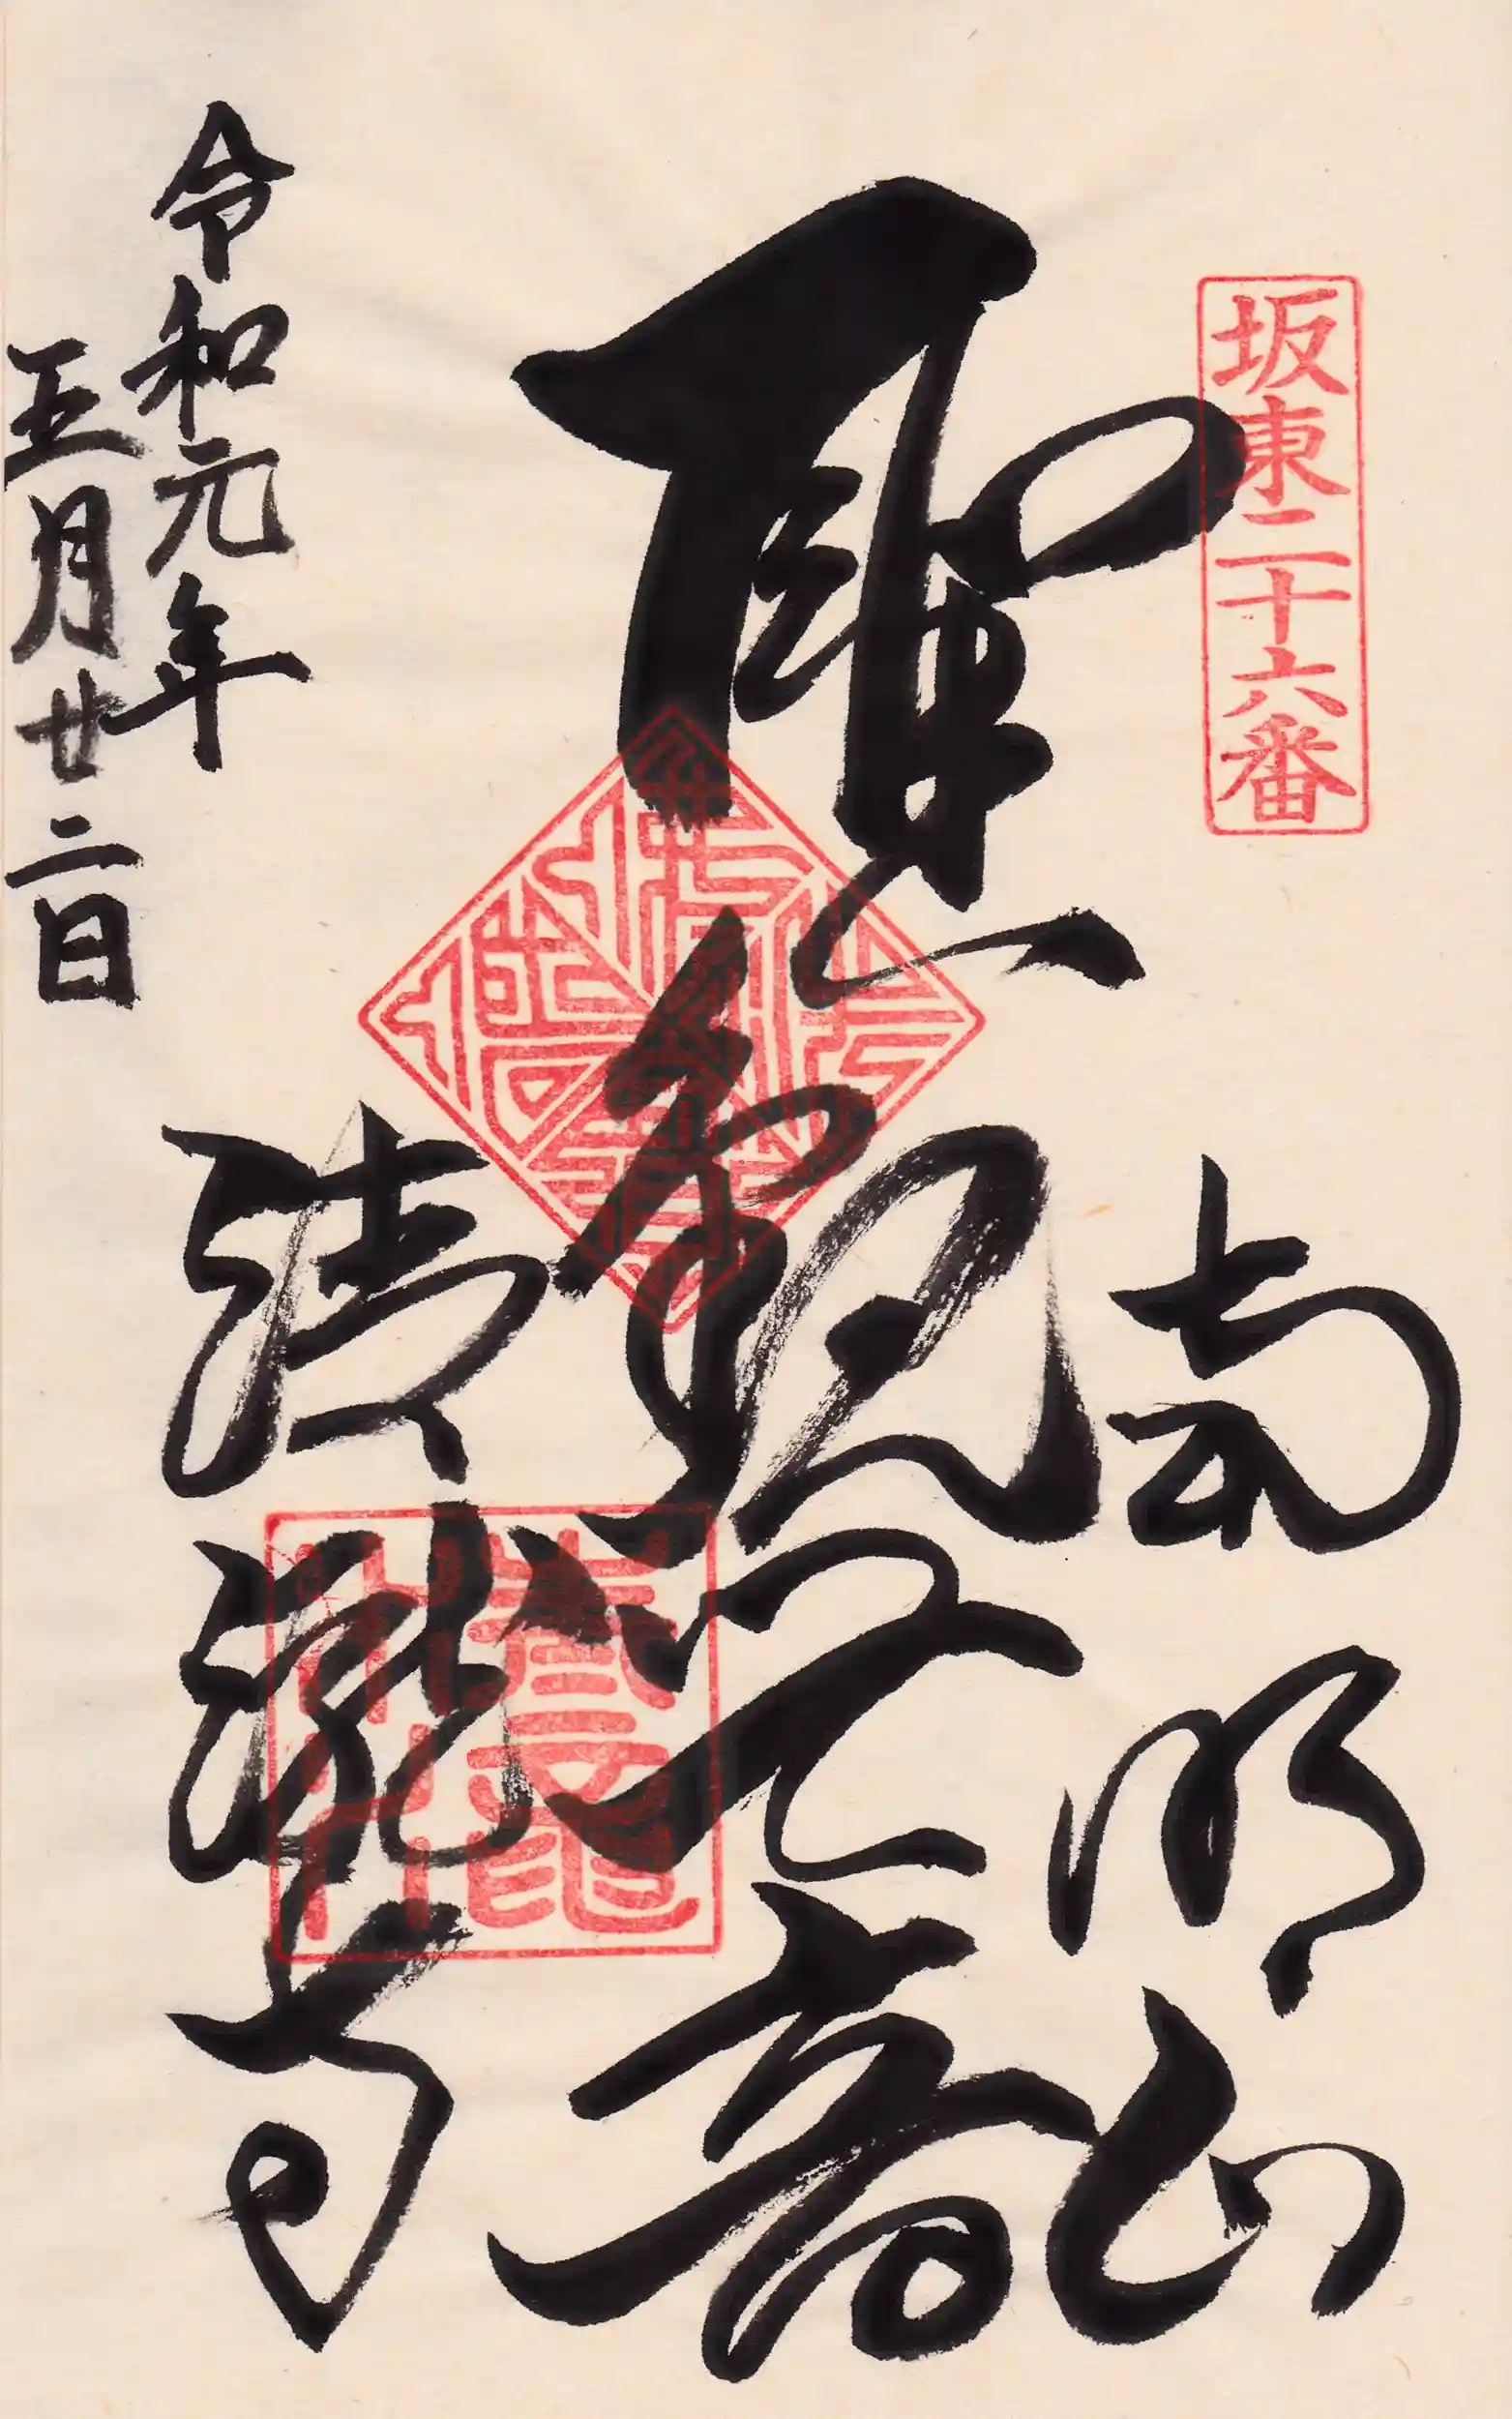 坂東二十六番
南明山
聖観世音
清瀧寺
令和元年
五月廿二日